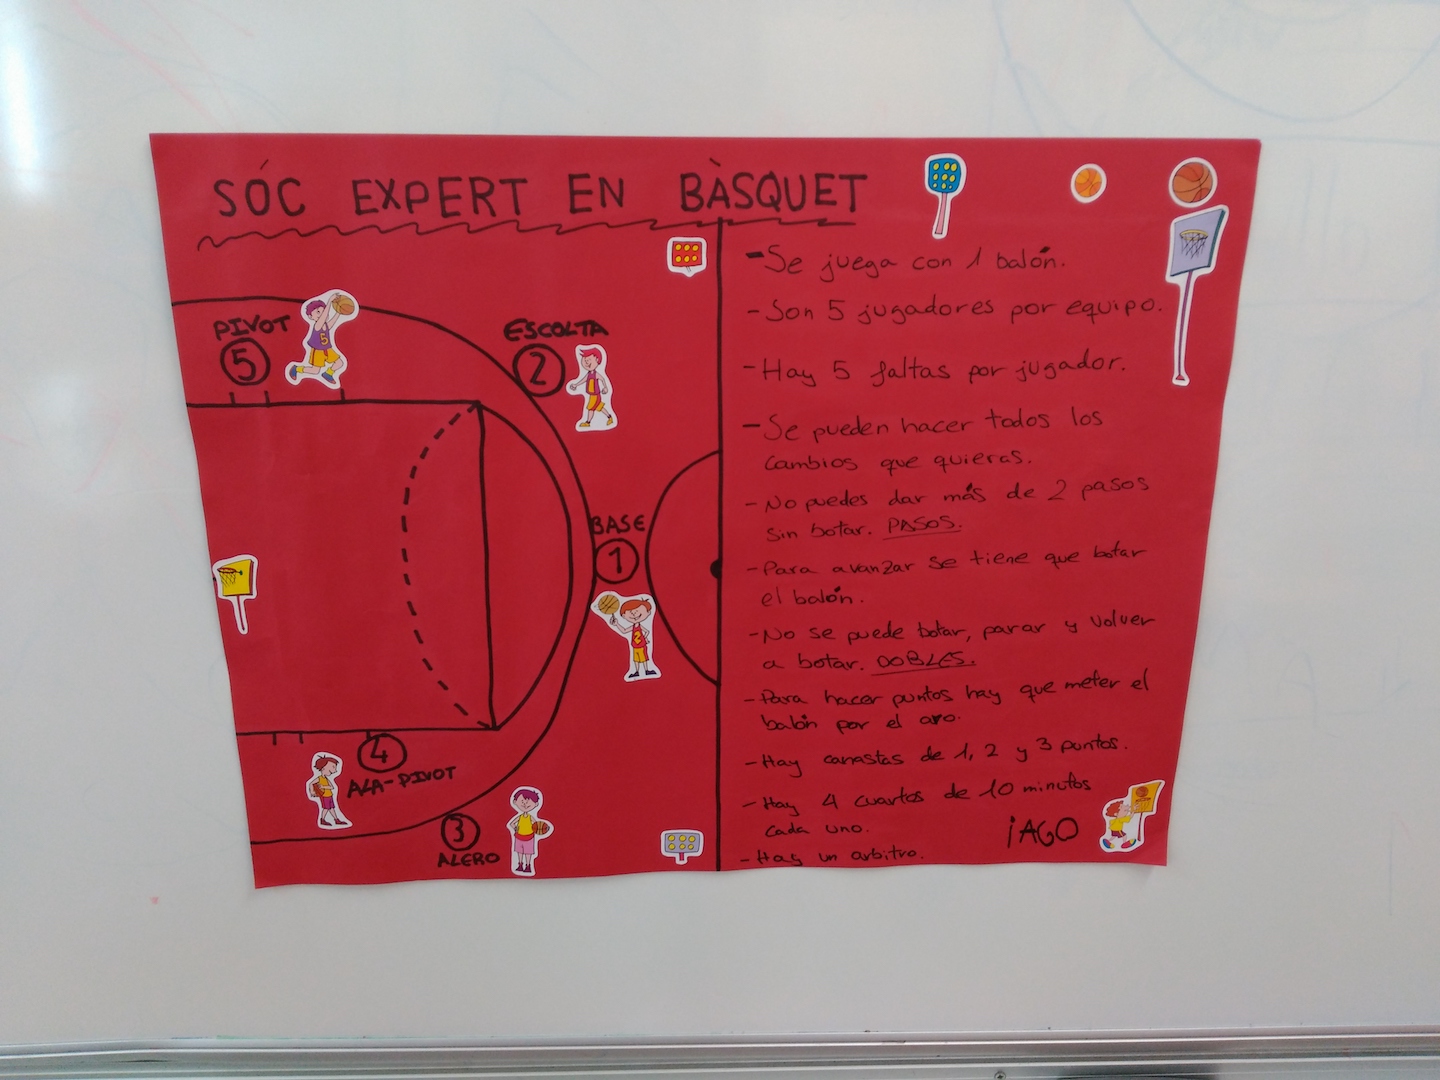 SÓC EXPERT EN BÀSQUET
PIVOT
5
5
ESCOLTA
2
BASE
1
2
4
ALA-PIVOT
3
ALERO
- Se juega con 1 balón.
- Son 5 jugadores por equipo.
- Hay 5 faltas por jugador.
- Se pueden hacer todos los
cambios que quieras.
- No puedes dar más de 2 pasos
sin botar. PASOS.
- Para avanzar se tiene que botar
el balón.
- No se puede botar, parar y volver
a botar. DOBLES.
- Para hacer puntos hay que meter el
balón por el aro.
- Hay canastas de 1, 2 y 3 puntos.
- Hay 4 cuartos de 10 minutos
cada uno.
- Hay un arbitro.
iAGO